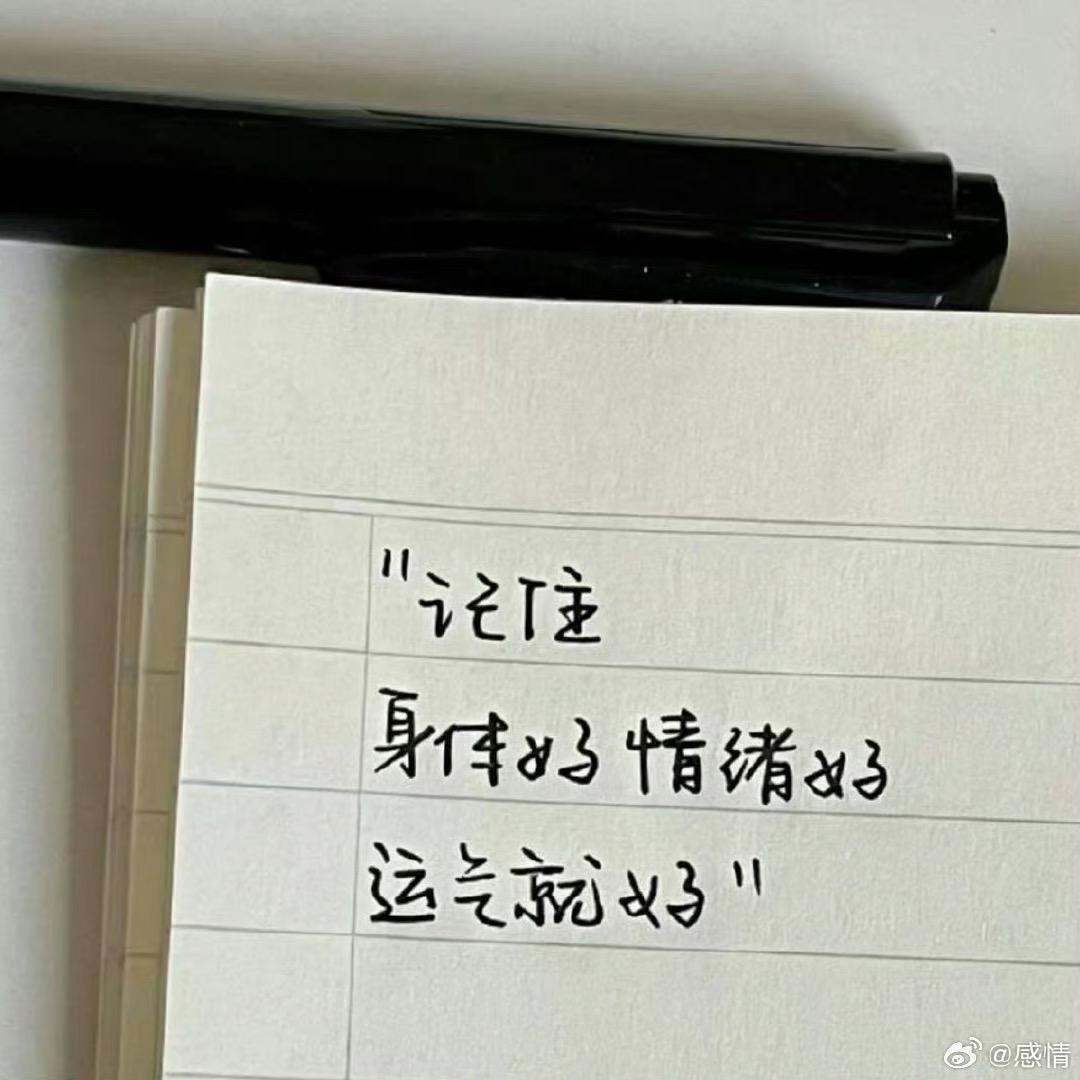 "记住
身体好 情绪好
运气就好"
@感情